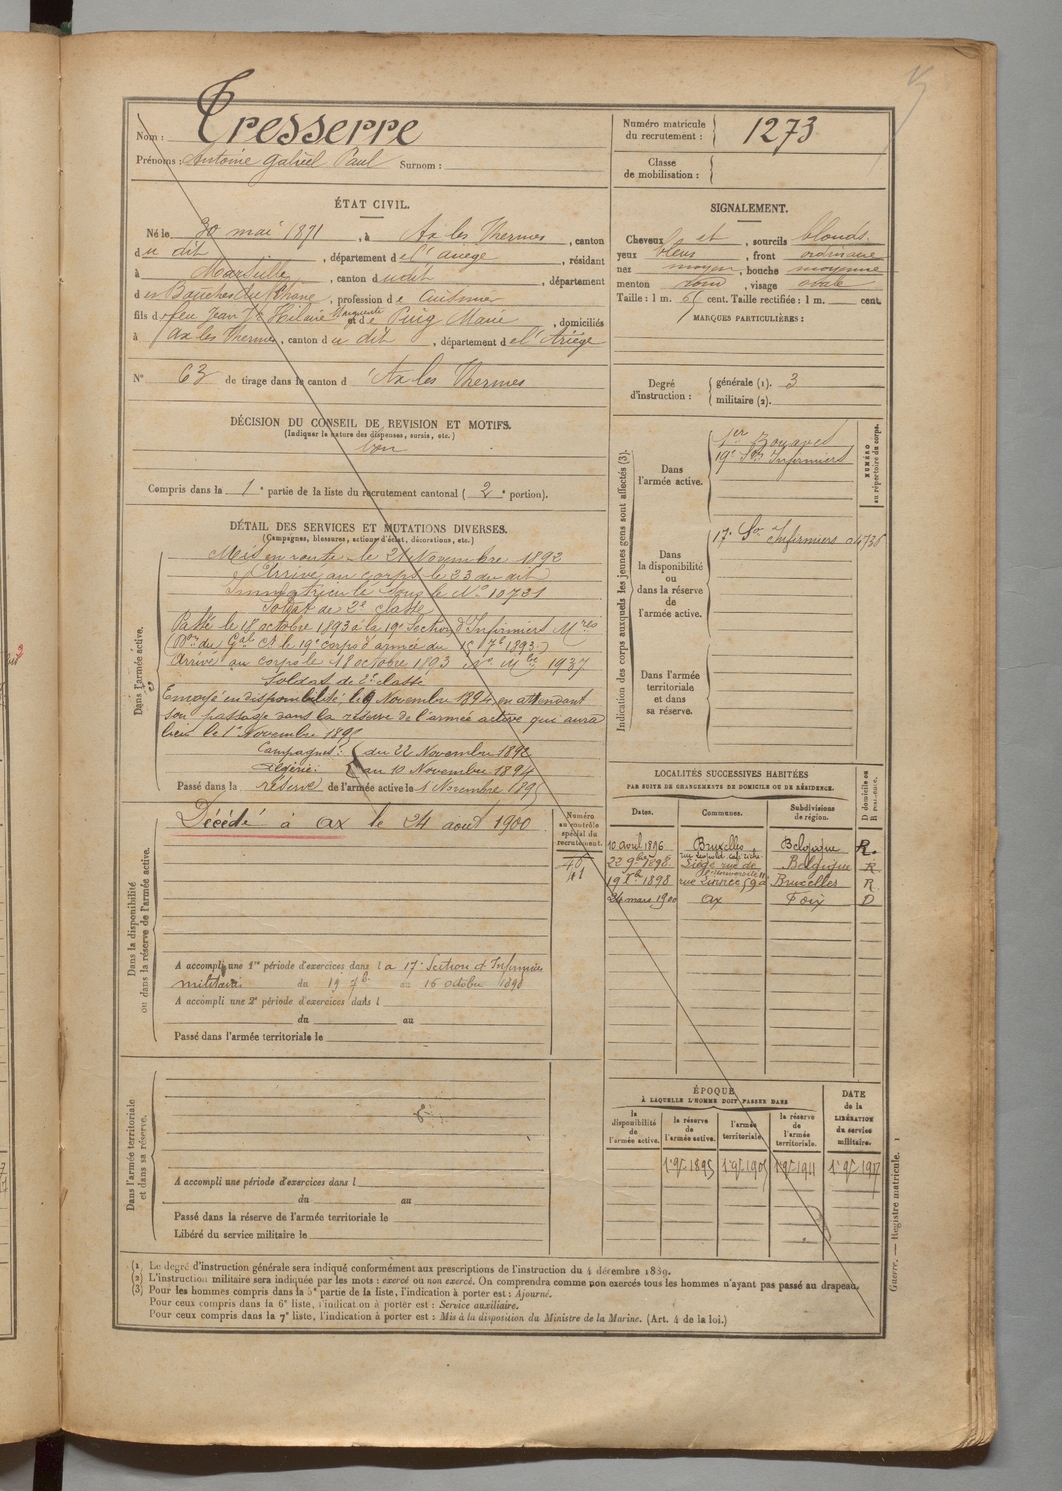 Nom : Tresserre
Prénoms : Antoine Gabriel Paul Surnom :
Numéro matricule du recrutement : 1273
Classe de mobilisation :
ÉTAT CIVIL.
Né le 30 mai 1871, à Ax les Thermes, canton
du dit, département de l'ariège, résidant
à Marseille, canton dudit, département
des Bouches du Rhône, profession de Cuisinier
fils de feu Jean Hilaire et de Puig Marie Marguerite, domiciliés
à Ax les Thermes, canton du dit, département de l'Ariège
N° 63 de tirage dans le canton d'Ax les Thermes
SIGNALEMENT.
Cheveux et, sourcils blonds
yeux bleus, front ordinaire
nez moyen, bouche moyenne
menton rond, visage ovale
Taille : 1 m. 65 cent. Taille rectifiée : 1 m. cent.
MARQUES PARTICULIÈRES :
Degré d'instruction : générale (1). 3
militaire (2).
DÉCISION DU CONSEIL DE REVISION ET MOTIFS.
(Indiquer la nature des dispenses, sursis, etc.)
bon
Compris dans la 1e partie de la liste du recrutement cantonal (2e portion).
DÉTAIL DES SERVICES ET MUTATIONS DIVERSES.
(Campagnes, blessures, actions d'éclat, décorations, etc.)
Dans l'armée active.
Mis en route le 21 Novembre 1892
Arrivé au corps le 23 du dit
Immatriculé sous le N° 10731
Soldat de 2e classe
Passé le 18 octobre 1893 à la 19e Section d'Infirmiers Mres
(On du Gal Ct le 19e corps d'armée du 15 7b 1893)
Arrivé au corps le 18 octobre 1893 N° Mle 1937
Soldat de 2e classe
Envoyé en disponibilité le 9 Novembre 1894 en attendant
son passage dans la réserve de l'armée active qui aura
lieu le 1er Novembre 1895
Campagnes : du 22 Novembre 1892
Algérie : au 10 Novembre 1894
Passé dans la réserve de l'armée active le 1 Novembre 1895
Indication des corps auxquels les jeunes gens sont affectés (3).
NUMÉRO au répertoire du corps.
Dans l'armée active.
1er Zouaves
19e Son Infirmiers
Dans la disponibilité ou dans la réserve de l'armée active.
17e Son Infirmiers
Dans l'armée territoriale et dans sa réserve.
Dans la disponibilité ou dans la réserve de l'armée active.
Décédé à ax le 24 août 1900
Numéro au contrôle spécial du recrutement.
A accompli une 1re période d'exercices dans la 17e Section d'Infirmiers
militaires du 19 7b au 16 octobre 1898
A accompli une 2e période d'exercices dans l
du au
Passé dans l'armée territoriale le
LOCALITÉS SUCCESSIVES HABITÉES
PAR SUITE DE CHANGEMENTS DE DOMICILE OU DE RÉSIDENCE.
D domicile ou R résidence.
Dates. Communes. Subdivisions de région.
10 avril 1896 Bruxelles Belgique R.
22 9bre 1898 Liège rue de l'Université Belgique R
19 Xb 1898 Bruxelles R
24 mars 1900 ax Foix D
Dans l'armée territoriale et dans sa réserve.
A accompli une période d'exercices dans l
du au
Passé dans la réserve de l'armée territoriale le
Libéré du service militaire le
ÉPOQUE
À LAQUELLE L'HOMME DOIT PASSER DANS
la disponibilité de l'armée active.
la réserve de l'armée active.
l'armée territoriale.
la réserve de l'armée territoriale.
DATE de la LIBÉRATION du service militaire.
1er 9b 1895 1er 9b 1905 1er 9b 1911 1er 9b 1917
(1) Le degré d'instruction générale sera indiqué conformément aux prescriptions de l'instruction du 4 décembre 1889.
(2) L'instruction militaire sera indiquée par les mots : exercé ou non exercé. On comprendra comme non exercés tous les hommes n'ayant pas passé au drapeau.
(3) Pour les hommes compris dans la 5e partie de la liste, l'indication à porter est : Ajourné.
Pour ceux compris dans la 6e liste, l'indication à porter est : Service auxiliaire.
Pour ceux compris dans la 7e liste, l'indication à porter est : Mis à la disposition du Ministre de la Marine. (Art. 4 de la loi.)
Guerre. — Registre matricule. 1